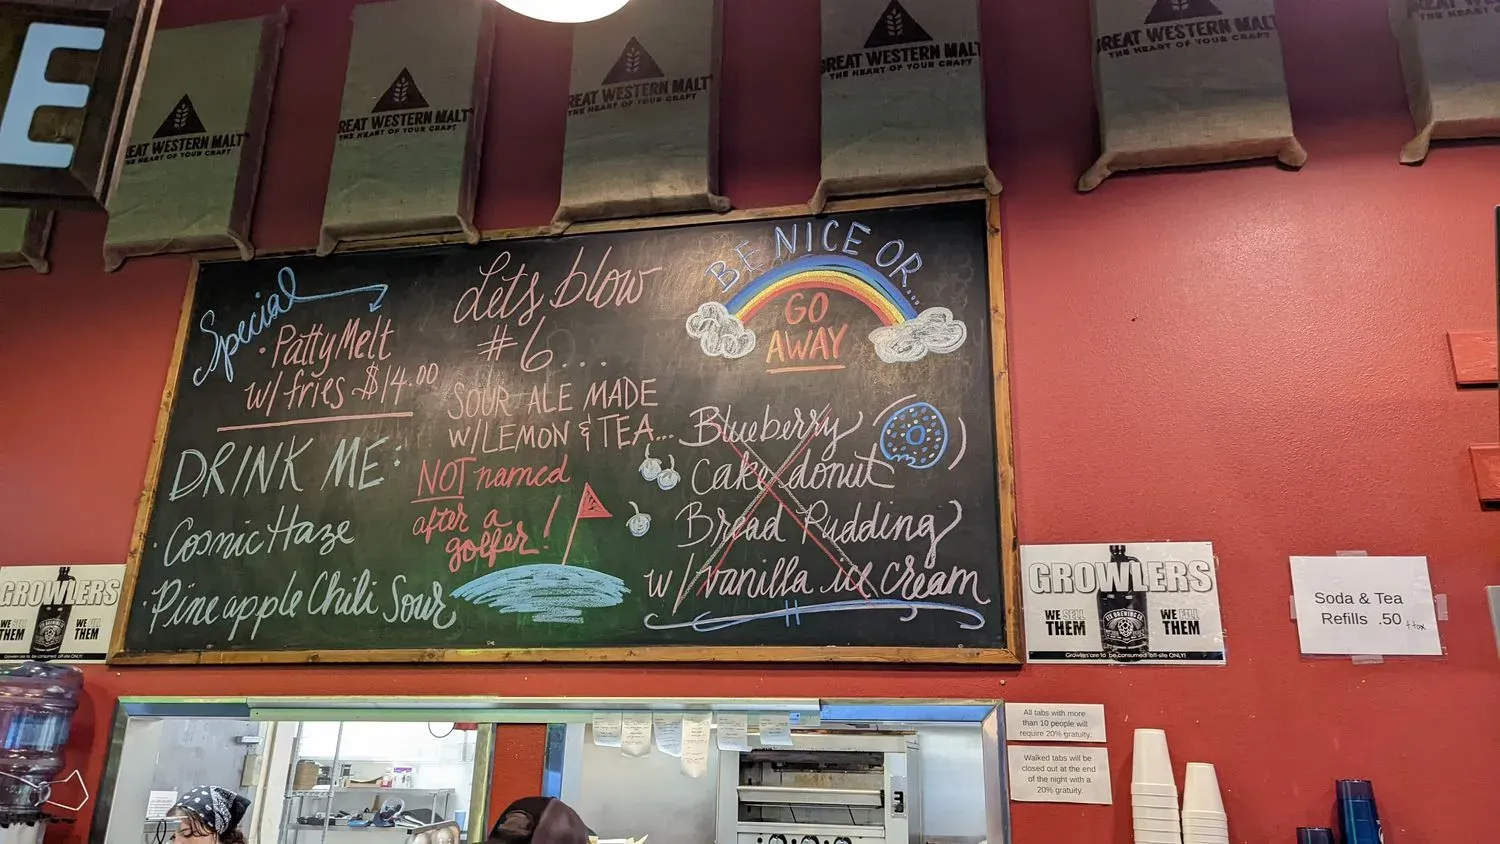 E
REAT WESTERN MALT
THE HEART OF YOUR CRAFT
REAT WESTERN MALT
THE HEART OF YOUR CRAFT
REAT WESTERN MALT
THE HEART OF YOUR CRAFT
GREAT WESTERN MALT
THE HEART OF YOUR CRAFT
GREAT WESTERN MALT
THE HEART OF YOUR CRAFT
GREAT WESTERN
THE HEART OF YOUR
Special
· Patty Melt
w/ fries $14.00
DRINK ME:
· Cosmic Haze
· Pineapple Chili Sour
Lets blow
#6...
SOUR ALE MADE
W/LEMON & TEA...
NOT named
after a
golfer!
BE NICE OR...
GO
AWAY
Blueberry
Cake donut
Bread Pudding
w/ vanilla ice cream
GROWLERS
WE SELL
THEM
WE FILL
THEM
Growlers are to be consumed off-site ONLY!
GROWLERS
WE SELL
THEM
WE FILL
THEM
Growlers are to be consumed off-site ONLY!
Soda & Tea
Refills .50 + tax
All tabs with more
than 10 people will
require 20% gratuity.
Walked tabs will be
closed out at the end
of the night with a
20% gratuity.